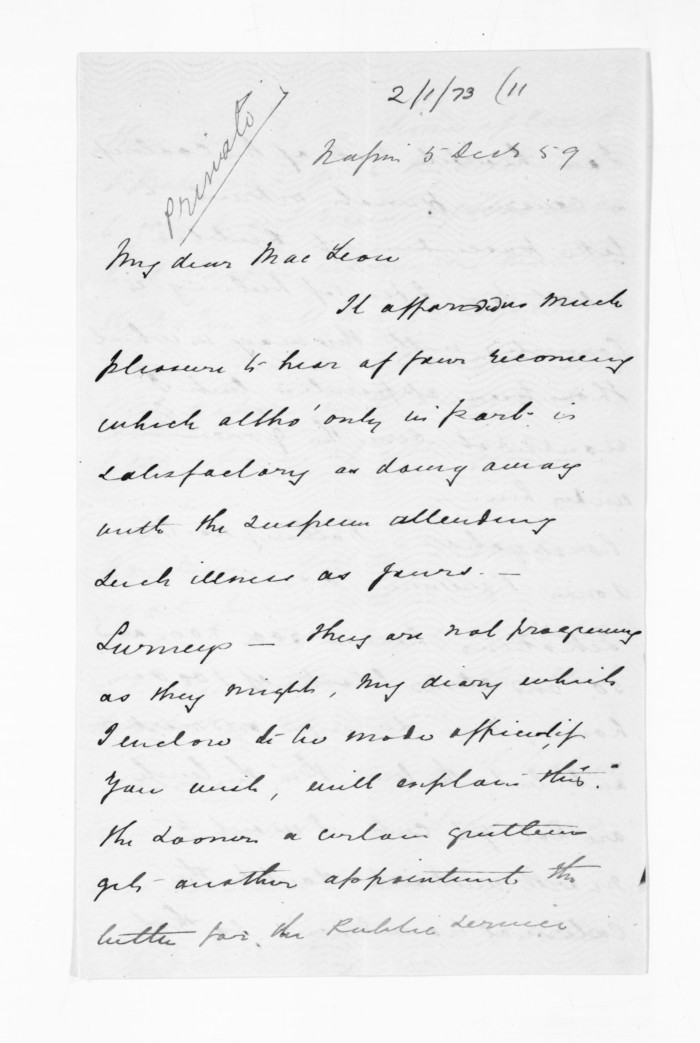 2/1/73 (11
Private
Napier 5 Decr 59
My dear Mac Lean
It affords us much
pleasure to hear of your recovery
which altho' only in part is
satisfactory as doing away
with the suspense attending
such illness as yours. —
Surveys — they are not progressing
as they might, My diary which
I enclose to be made official if
You wish, will explain this.
the sooner a certain gentleman
gets another appointment the
better for the Public Service